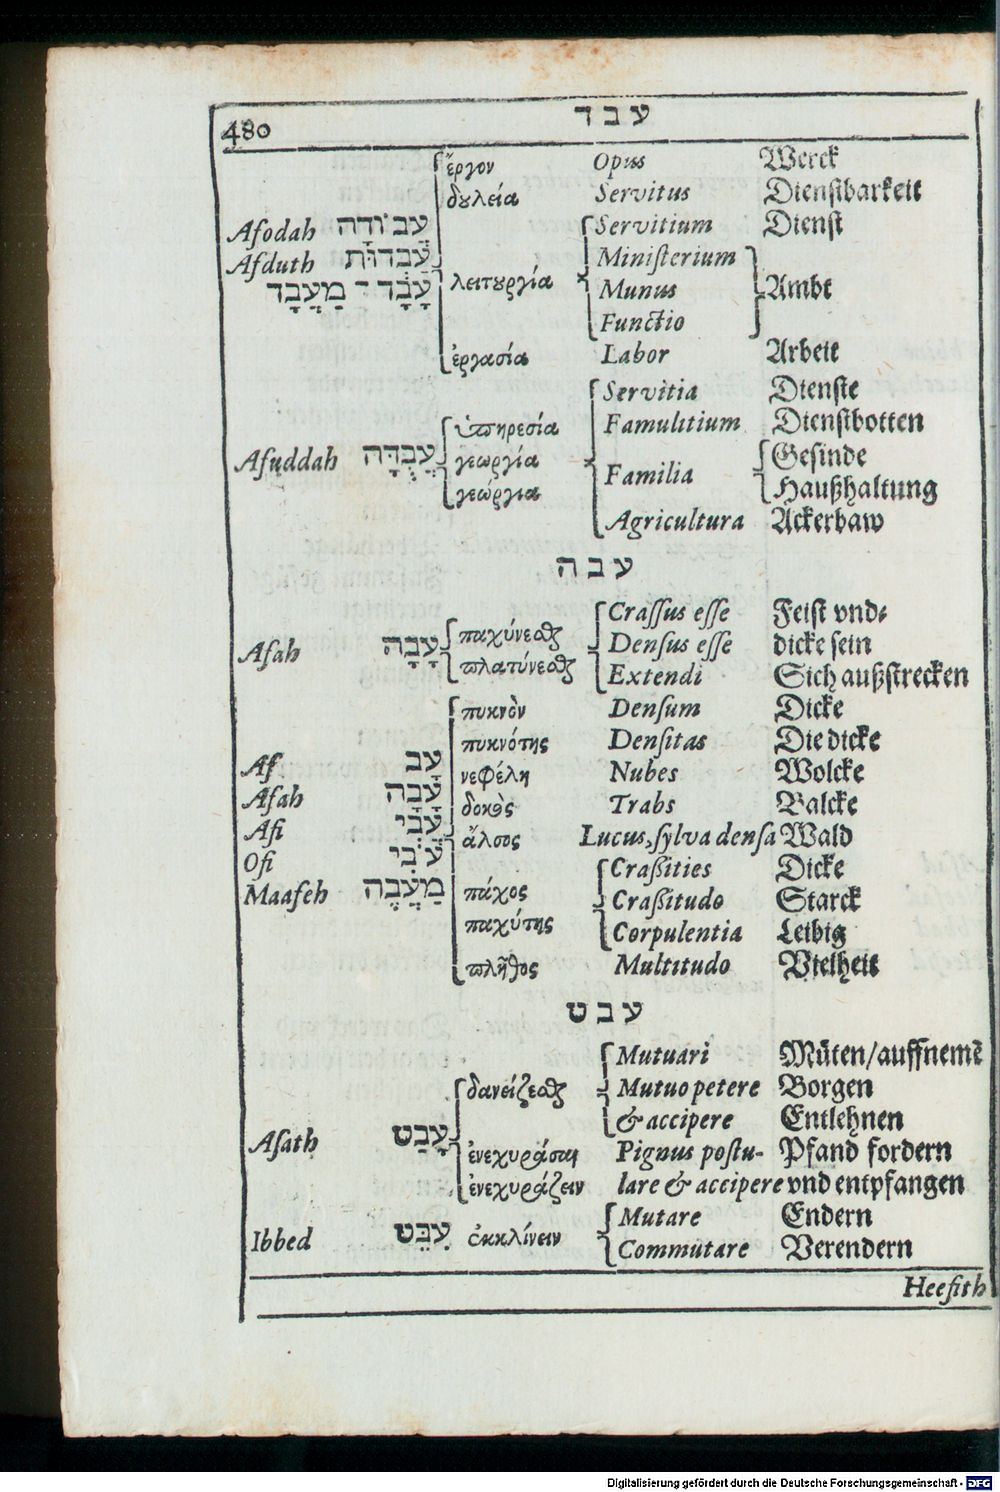 480 עבד
ἔργον Opus Werck
δουλεία Servitus Dienstbarkeit
Afodah עֲבוֹדָה Servitium Dienst
Afduth עַבְדוּת Ministerium
λειτουργία Munus Ambt
עָבָד - מַעֲבָד Functio
ἐργασία Labor Arbeit
Servitia Dienste
ὑπηρεσία Famulitium Dienstbotten
Afuddah עֲבֻדָּה γεωργία Familia Gesinde
γεώργια Haußhaltung
Agricultura Ackerbaw
עבה
Crassus esse Feist vnd⸗
Afah עָבָה παχύνεσθαι Densus esse dicke sein
πλατύνεσθαι Extendi Sich außstrecken
πυκνὸν Densum Dicke
πυκνότης Densitas Die dicke
Af עָב νεφέλη Nubes Wolcke
Afah עָבָה δοκὸς Trabs Balcke
Afi עֲבִי ἄλσος Lucus, sylva densa Wald
Ofi עֳבִי Crassities Dicke
Maafeh מַעֲבֶה πάχος Crassitudo Starck
παχύτης Corpulentia Leibig
πλῆθος Multitudo Vielheit
עבט
Mutuari Müten/auffnemē
δανείζεσθαι Mutuo petere Borgen
& accipere Entlehnen
Afath עָבַט ἐνεχυράσαι Pignus postu- Pfand fordern
ἐνεχυράζειν lare & accipere vnd entpfangen
Mutare Endern
Ibbed עִבֵּט ἐκκλίνειν Commutare Verendern
Heefith
Digitalisierung gefördert durch die Deutsche Forschungsgemeinschaft - DFG